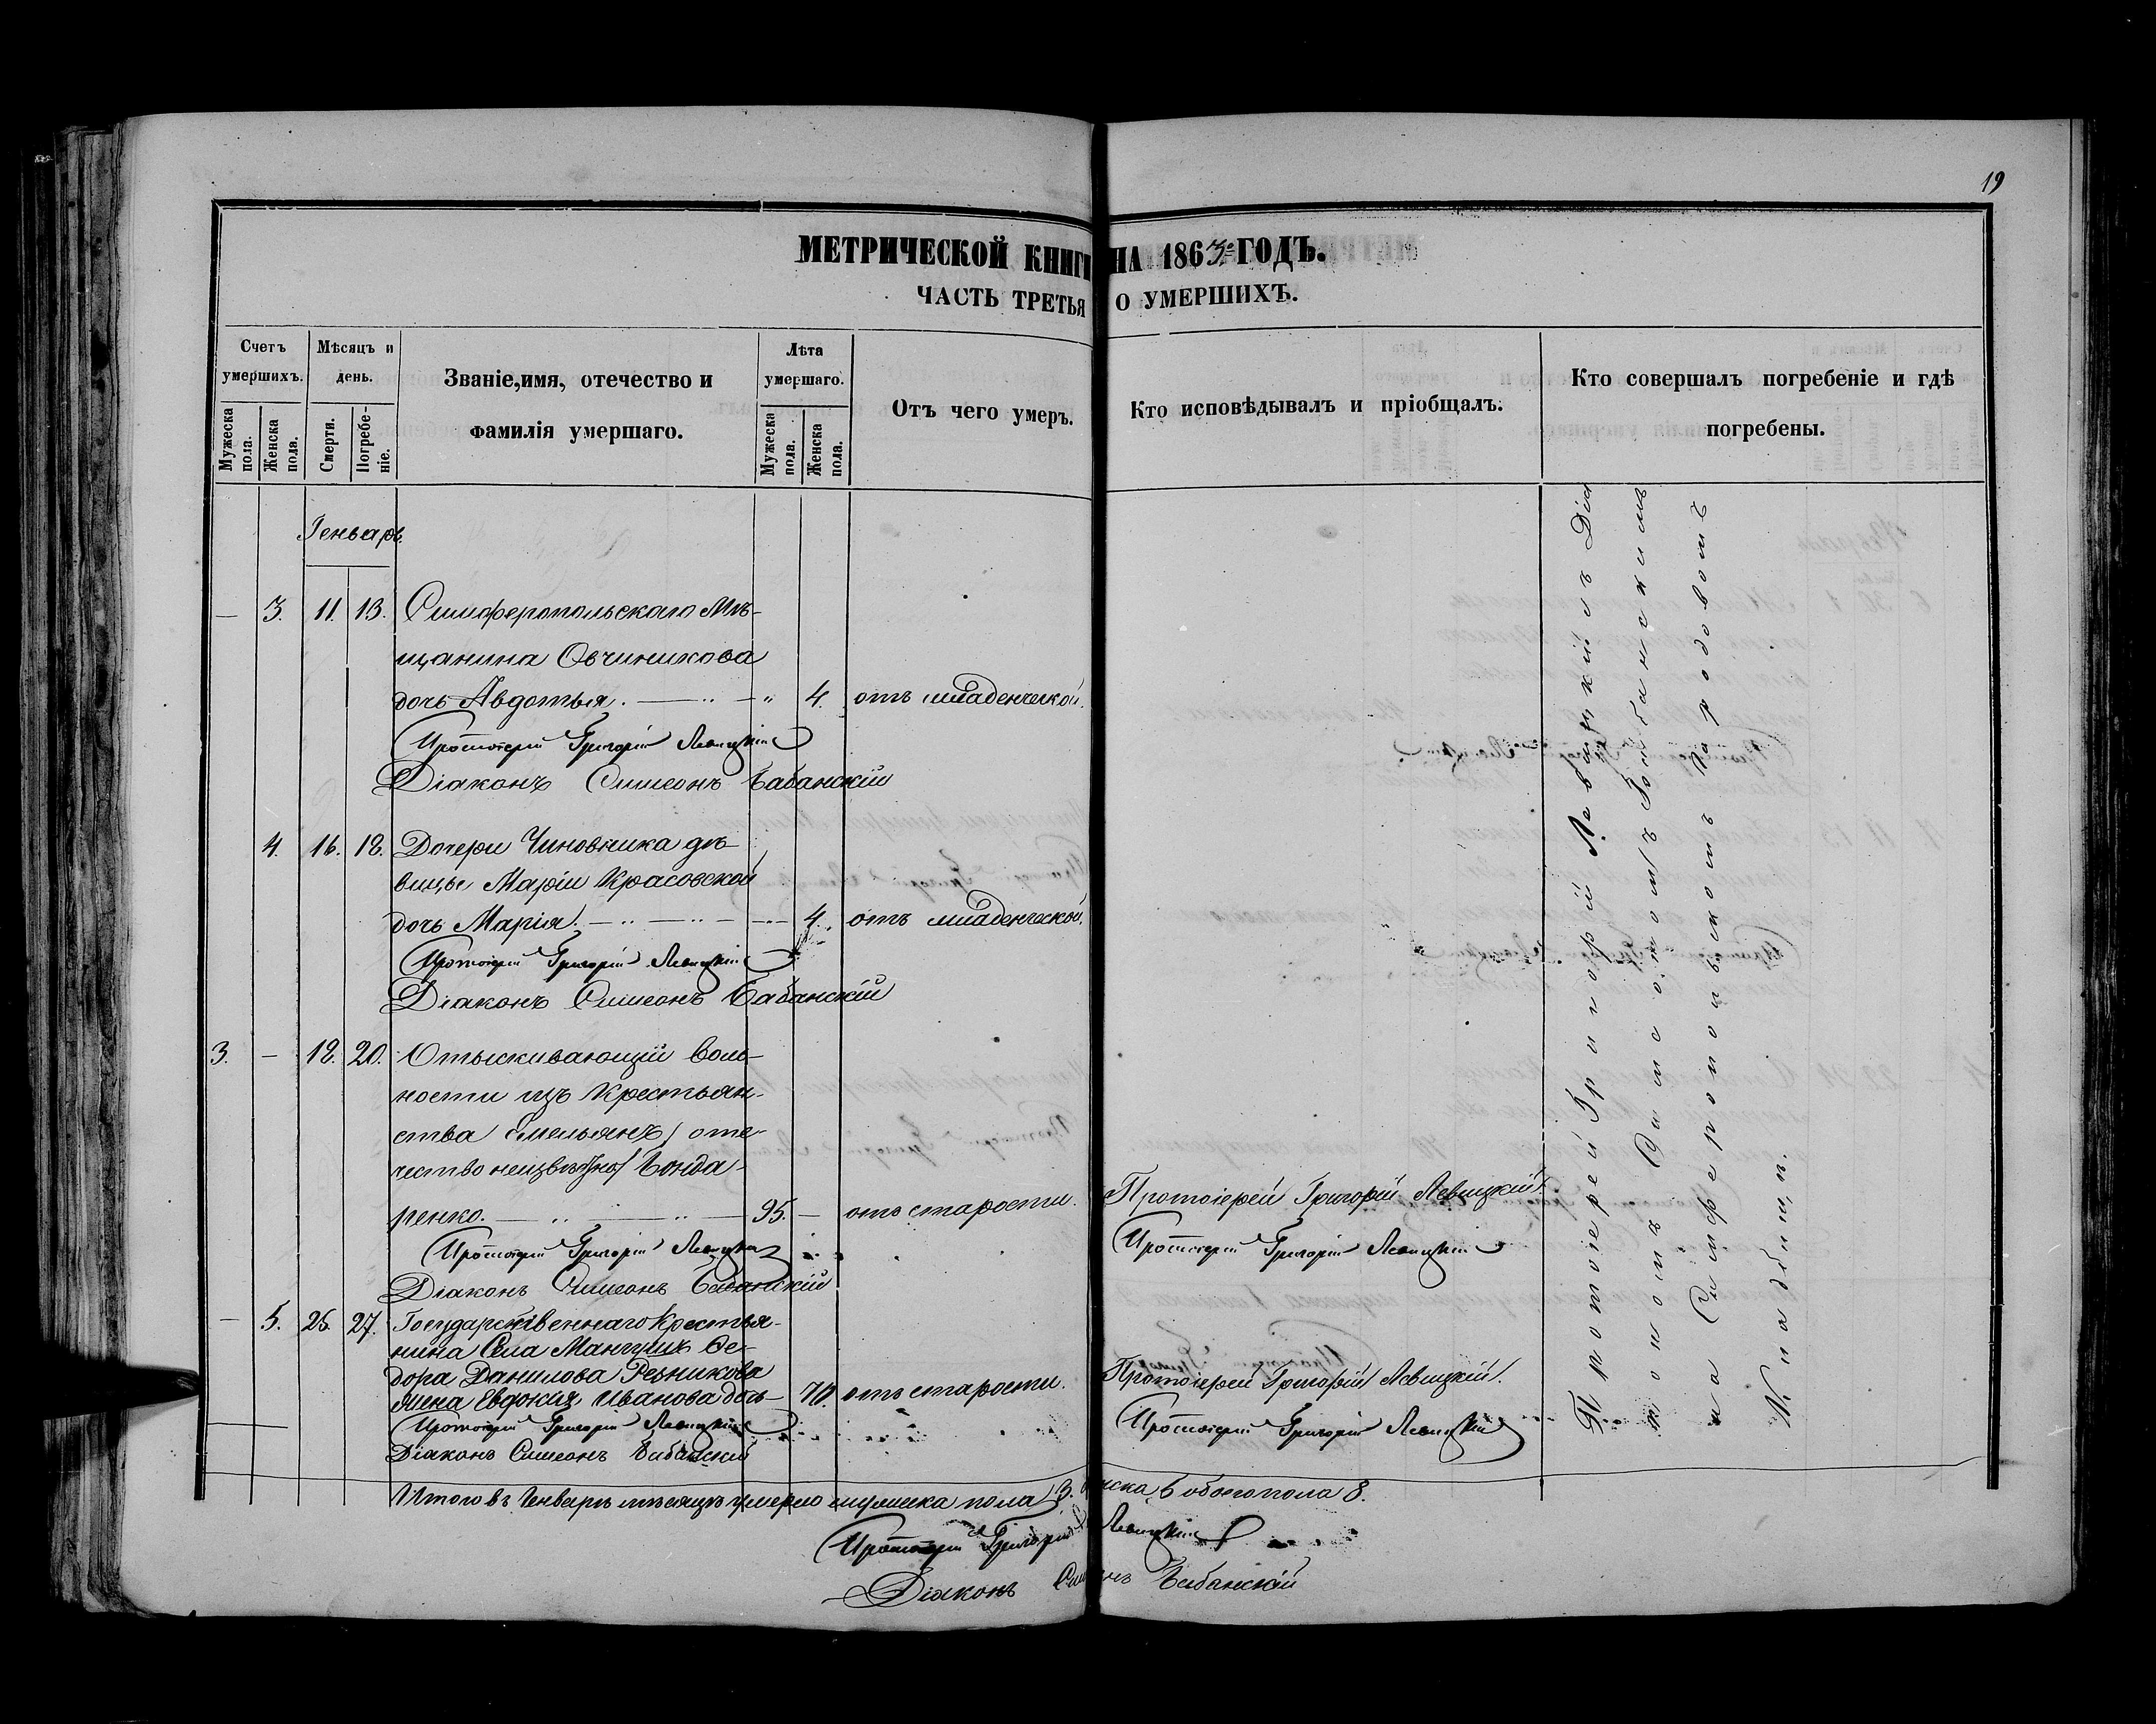 19
МЕТРИЧЕСКОЙ КНИГИ НА 1863го ГОДЪ.
ЧАСТЬ ТРЕТЬЯ О УМЕРШИХЪ.
Счетъ умершихъ.
Мужеска пола.
Женска пола.
Мѣсяцъ и день.
Смерти.
Погребе-ніе.
Званіе, имя, отечество и
фамилія умершаго.
Лѣта умершаго.
Мужеска пола.
Женска пола.
Отъ чего умеръ.
Кто исповѣдывалъ и пріобщалъ.
Кто совершалъ погребеніе и гдѣ
погребены.
Генварь.
— 3. 11. 13. Симферопольскаго Мѣ-
щанина Овчиникова
дочь Авдотья. — „ — „ 4. отъ младенческой.
Протоіерей Григорій Левицкій
Діаконъ Симеонъ Бабанскій
4. 16. 18. Дочери Чиновника дѣ-
вицы Маріи Красовской
дочь Марія. — „ — „ — 4. отъ младенческой.
Протоіерей Григорій Левицкій
Діаконъ Симеонъ Бабанскій
3. — 18. 20. Отыскивающій воль-
ности изъ Крестьян-
ства Емельянъ / оте-
чество неизвѣстно / Бонда-
ренко. — „ — „ — 95. — отъ старости. Протоіерей Григорій Левицкій.
Протоіерей Григорій Левицкій
Протоіерей Григорій Левицкій
Діаконъ Симеонъ Бабанскій
— 5. 25. 27. Государственнаго Крестья-
нина Села Мангушъ Ѳе-
дора Данилова Резникова
жена Евдокія Иванова дочь — 70. отъ старости. Протоіерей Григорій Левицкій.
Протоіерей Григорій Левицкій
Протоіерей Григорій Левицкій
Діаконъ Симеонъ Бабанскій
Протоіерей Григорій Левицкій съ Діа
кономъ Симеономъ Бабанскимъ
на Симферопольскомъ городовомъ
Кладбищѣ.
Итого въ Генварѣ мѣсяцѣ умерло мужеска пола 3. женска 5 обоего пола 8.
Протоіерей Григорій Левицкій
Діаконъ Симеонъ Бабанскій